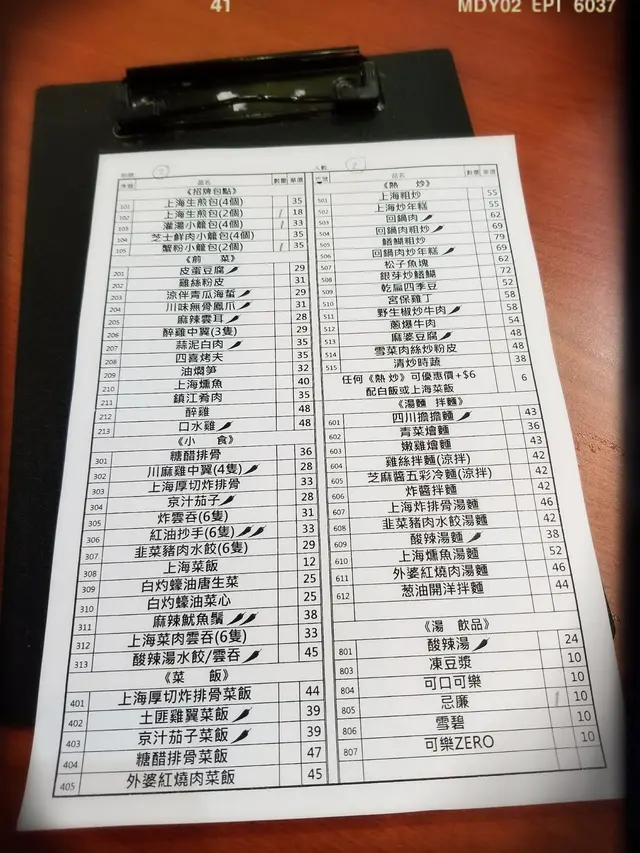 41
MDY02 EPT 6037
品名 數量 單價
《招牌包點》
101 上海生煎包(4個) 35
102 上海生煎包(2個) 18
103 灌湯小籠包(4個) 33
104 芝士鮮肉小籠包(4個) 35
105 蟹粉小籠包(2個) 35
《前 菜》
201 皮蛋豆腐 29
202 雞絲粉皮 31
203 涼伴青瓜海蜇 29
204 川味無骨鳳爪 31
205 麻辣雲耳 28
206 醉雞中翼(3隻) 29
207 蒜泥白肉 35
208 四喜烤夫 35
209 油燜筍 32
210 上海燻魚 40
211 鎮江肴肉 35
212 醉雞 48
213 口水雞 48
《小 食》
301 糖醋排骨 36
302 川麻雞中翼(4隻) 28
303 上海厚切炸排骨 33
304 京汁茄子 28
305 炸雲吞(6隻) 31
306 紅油抄手(6隻) 33
307 韭菜豬肉水餃(6隻) 29
308 上海菜飯 12
309 白灼蠔油唐生菜 25
310 白灼蠔油菜心 25
311 麻辣魷魚鬚 38
312 上海菜肉雲吞(6隻) 33
313 酸辣湯水餃/雲吞 45
《菜 飯》
401 上海厚切炸排骨菜飯 44
402 土匪雞翼菜飯 39
403 京汁茄子菜飯 39
404 糖醋排骨菜飯 47
405 外婆紅燒肉菜飯 45
人數
品名 數量 單價
《熱 炒》
501 上海粗炒 55
502 上海炒年糕 55
503 回鍋肉 62
504 回鍋肉粗炒 69
505 鱔糊粗炒 79
506 回鍋肉炒年糕 69
507 松子魚塊 62
508 銀芽炒鱔糊 72
509 乾扁四季豆 52
510 宮保雞丁 58
511 野生椒炒牛肉 58
512 蔥爆牛肉 54
513 麻婆豆腐 48
514 雪菜肉絲炒粉皮 48
515 清炒時蔬 38
任何《熱炒》可優惠價+$6
配白飯或上海菜飯 6
《湯麵 拌麵》
601 四川擔擔麵 43
602 青菜燴麵 36
603 嫩雞燴麵 43
604 雞絲拌麵(涼拌) 42
605 芝麻醬五彩冷麵(涼拌) 42
606 炸醬拌麵 42
607 上海炸排骨湯麵 46
608 韭菜豬肉水餃湯麵 42
609 酸辣湯麵 38
610 上海燻魚湯麵 52
611 外婆紅燒肉湯麵 46
612 葱油開洋拌麵 44
《湯 飲品》
801 酸辣湯 24
803 凍豆漿 10
804 可口可樂 10
805 忌廉 10
806 雪碧 10
807 可樂ZERO 10